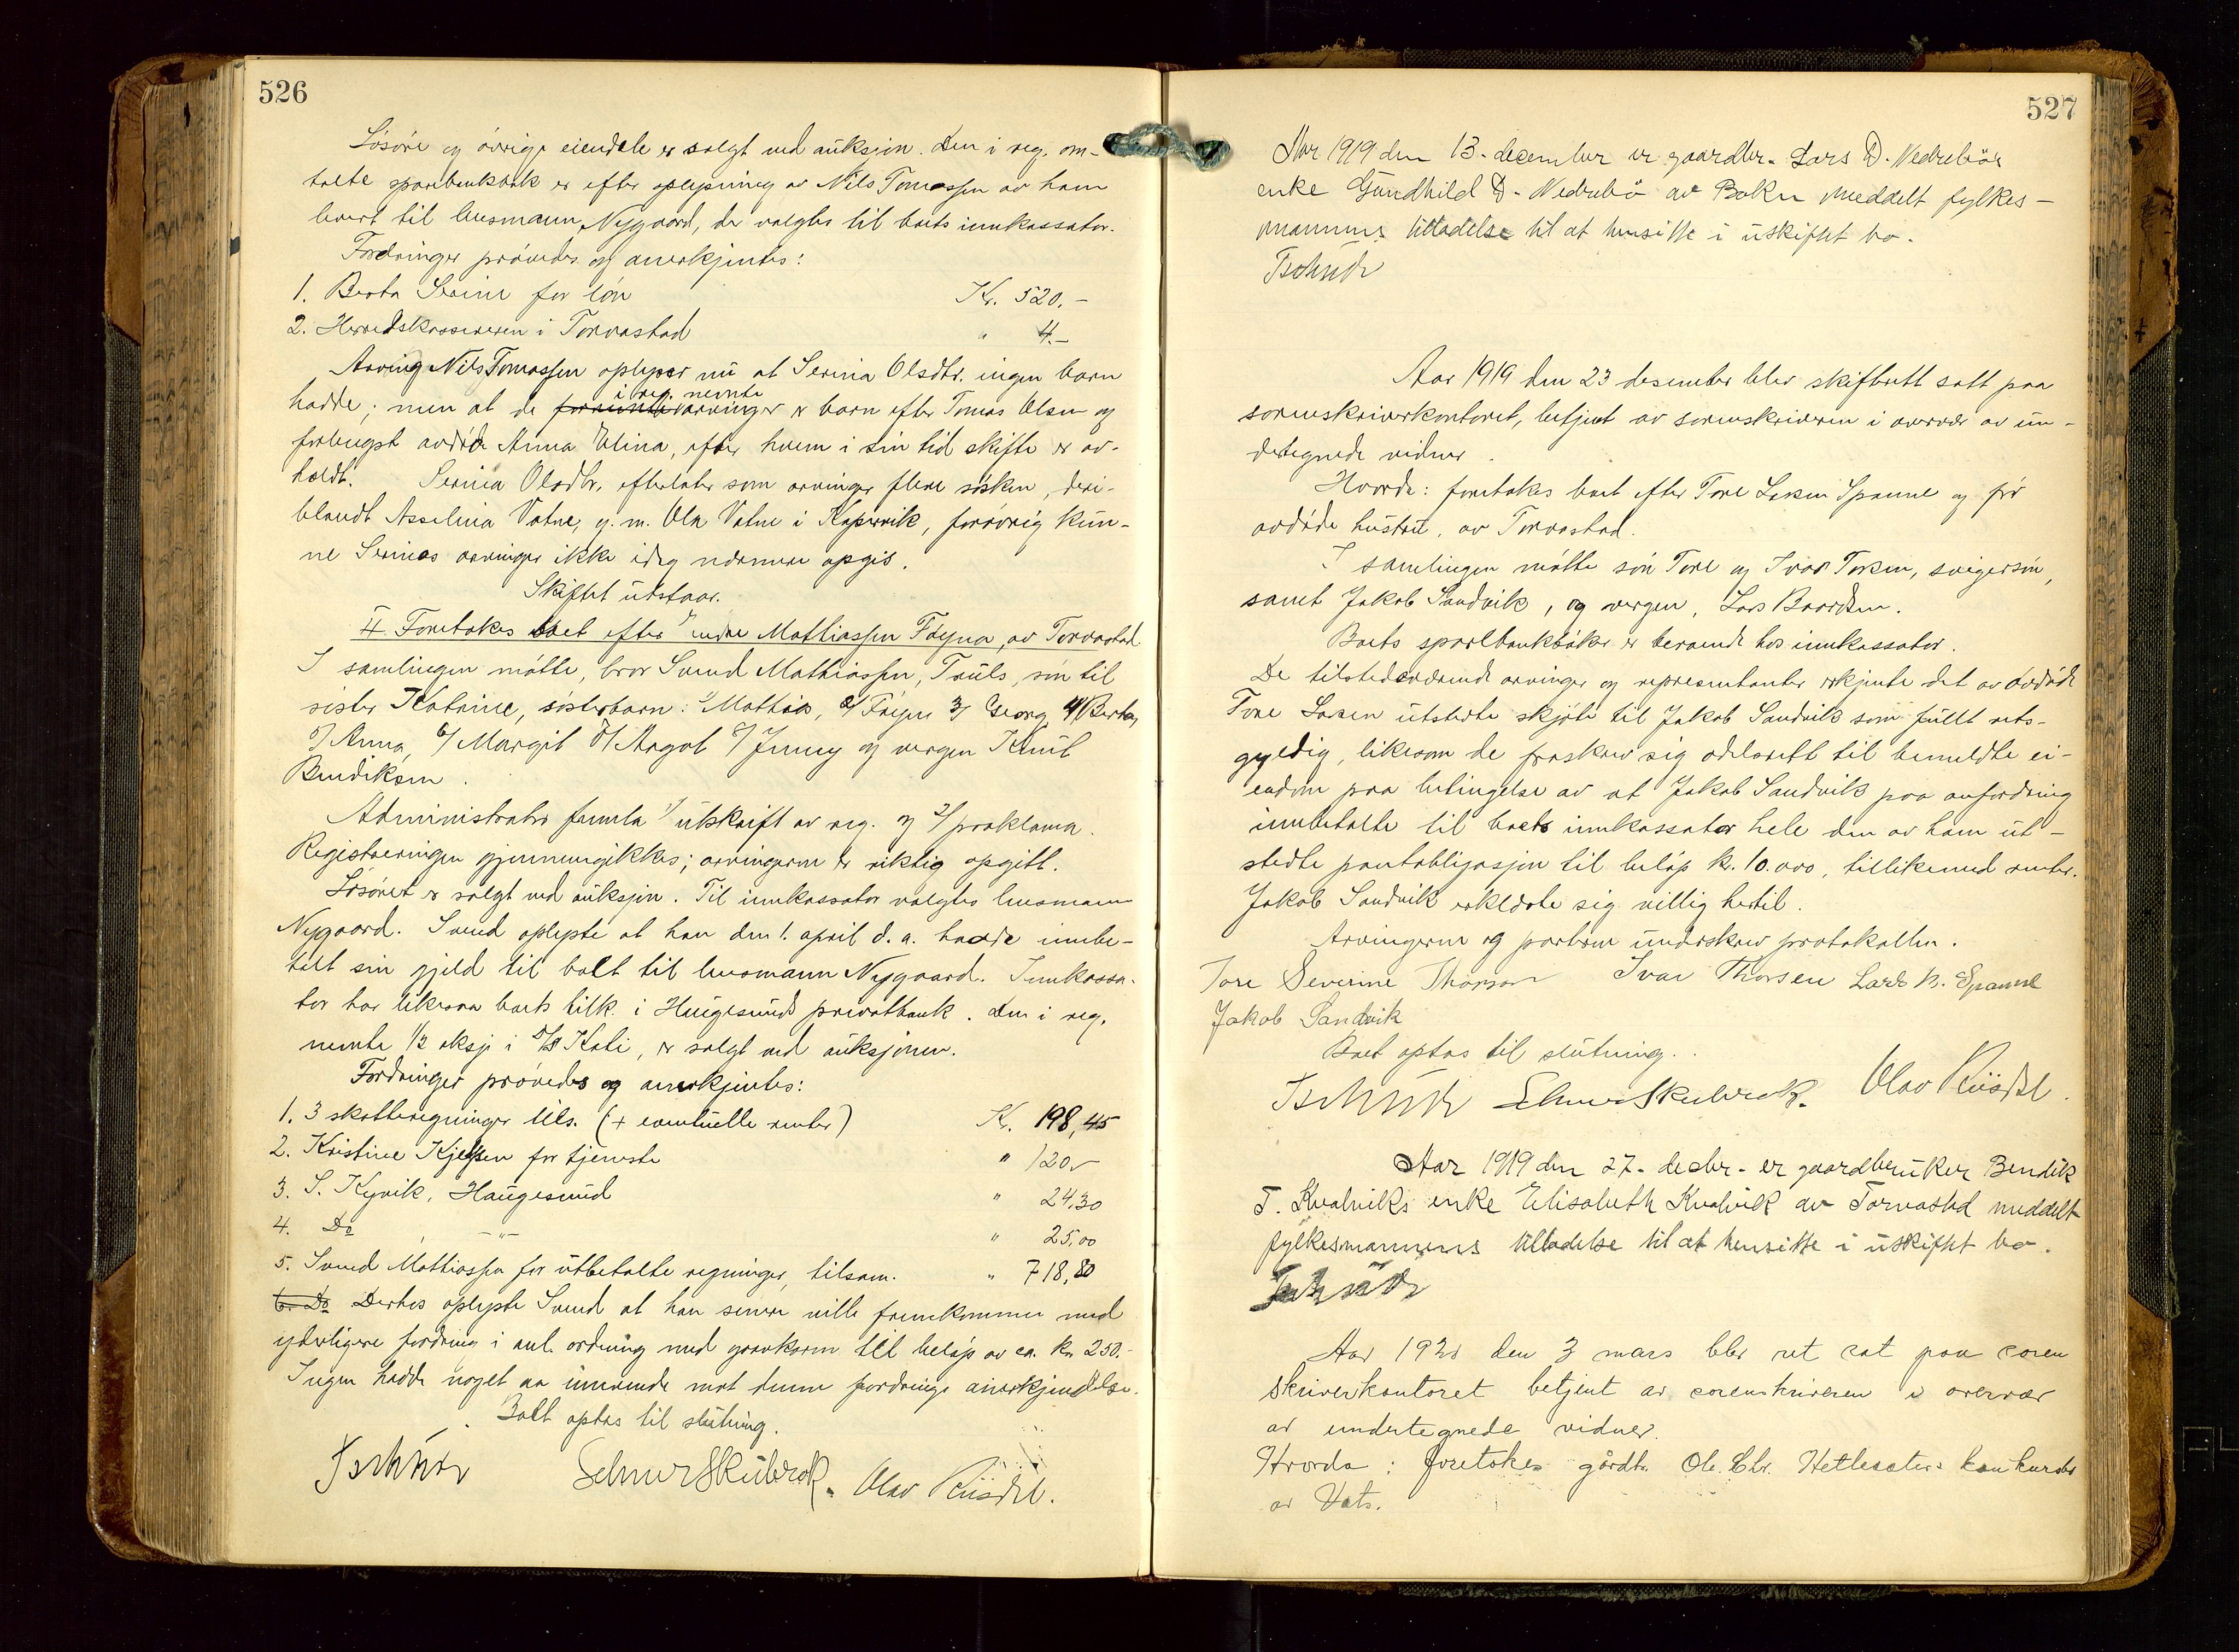 526
Løsøre og øvrige eiendele er solgt ved auksjon. Den i reg. om-
talte sparebankbok er efter oplysning av Nils Tomassen av ham
levert til lensmann Nygaard, der valgtes til boets innkassator.
Fordringer prøvedes og anerkjentes:
1. Berta Serine for løn Kr. 520.-
2. Herredskassereren i Torvastad " 4.-
Arving Nils Tomassen oplyser nu at Serina Olsdtr. ingen barn
i reg. nemte
hadde; men at de arvinger er barn efter Tomas Olsen og
forlengst avdøde Anna Elina, efter hvem i sin tid skifte er av-
holdt. Serina Olsdtr. efterlater som arvinger flere søsken, deri-
blandt Asselina Vatne, g. m. Ola Vatne i Kopervik, forøvrig kun-
ne Serinas arvinger ikke idag nærmere opgis.
Skiftet utstaar.
4. Foretokes boet efter Endre Mathiassen Føyna, av Torvastad
I samlingen møtte, bror Svend Mathiassen, Truls, søn til
søster Katrine, søsterbarn: 1/ Mathias, 2/ Føyen 3/ Georg 4/ Berta,
5/ Anna, 6/ Margit 7/ Aagot 8/ Jenny og vergen Knut
Bendiksen.
Administrator fremla 1/ utskrift av reg. og 2/ proklama.
Registreringen gjennemgikkes; arvingerne er riktig opgitt.
Løsøret er solgt ved auksjon. Til innkassator valgtes lensmann
Nygaard. Svend oplyste at han den 1. april d. a. hadde innbe-
talt sin gjeld til boet til lensmann Nygaard. Innkassa-
tor har likesaa boets tilk. i Haugesunds privatbank. Den i reg.
nemte 1/2 aksje i D/S Kati, er solgt ved auksjonen.
Fordringer prøvedes og anerkjentes:
1. 3 skatteregninger tils. (+ eventuelle renter) Kr. 198,45
2. Kristine Kjelsen for tjeneste " 120.-
3. S. Kyvik, Haugesund " 24,30
4. Do , -"- " 25,00
5. Svend Mathiassen for utbetalte regninger, tilsam. " 718,80
Derhos oplyste Svend at han senere ville fremkomme med
yderligere fordring i anl. ordning med gravkarm til beløp av ca. kr. 250.-
Ingen hadde noget aa innvende mot denne fordrings anerkjendelse.
Boet optas til slutning.
Tschudi Selmer Skulerok. Olav Riisdal.
527
Aar 1919 den 13. december er gaardbr. Lars D. Nedrebøs
enke Gundhild D. Nedrebø av Bokn meddelt fylkes-
mannens tilladelse til at hensitte i uskiftet bo.
Tschudi
Aar 1919 den 23 desember blev skifterett satt paa
sorenskriverkontoret, betjent av sorenskriveren i overvær av un-
dertegnede vidner.
Hvorda: foretokes boet efter Tore Larsen Spanne og før
avdøde hustru, av Torvastad.
I samlingen møtte søn Tore og Ivar Torsen, svigersøn,
samt Jakob Sandvik, og vergen, Lars Baardsen.
Boets sparebankbøker er beroende hos innkassator.
De tilstedeværende arvinger og representanter erkjente det av avdøde
Tore Larsen utstedte skjøte til Jakob Sandvik som fullt rets-
gyldig, likesom de fraskrev sig odelsrett til bemeldte ei-
endom paa betingelse av at Jakob Sandvik paa anfordring
innbetalte til boets innkassator hele den av ham ut-
stedte pantobligasjon til beløp kr. 10.000, tillikemed renter.
Jakob Sandvik erklærte sig villig hertil.
Arvingerne og parterne underskrev protokollen.
Tore Severine Thorsen Ivar Thorsen Lars B. Spanne
Jakob Sandvik
Boet optas til slutning.
Tschudi Selmer Skulerok. Olav Riisdal.
Aar 1919 den 27. decbr. er gaardbruker Bendik
T. Kvalviks enke Elisabeth Kvalvik av Torvastad meddelt
fylkesmannens tilladelse til at hensitte i uskiftet bo.
Tschudi
Aar 1920 den 3 mars blev ret sat paa soren
skriverkontoret betjent av sorenskriveren i overvær
av undertegnede vidner.
Hvorda: foretokes gårdbr. Ole Chr. Hetlesæters konkursbo
av Vats.